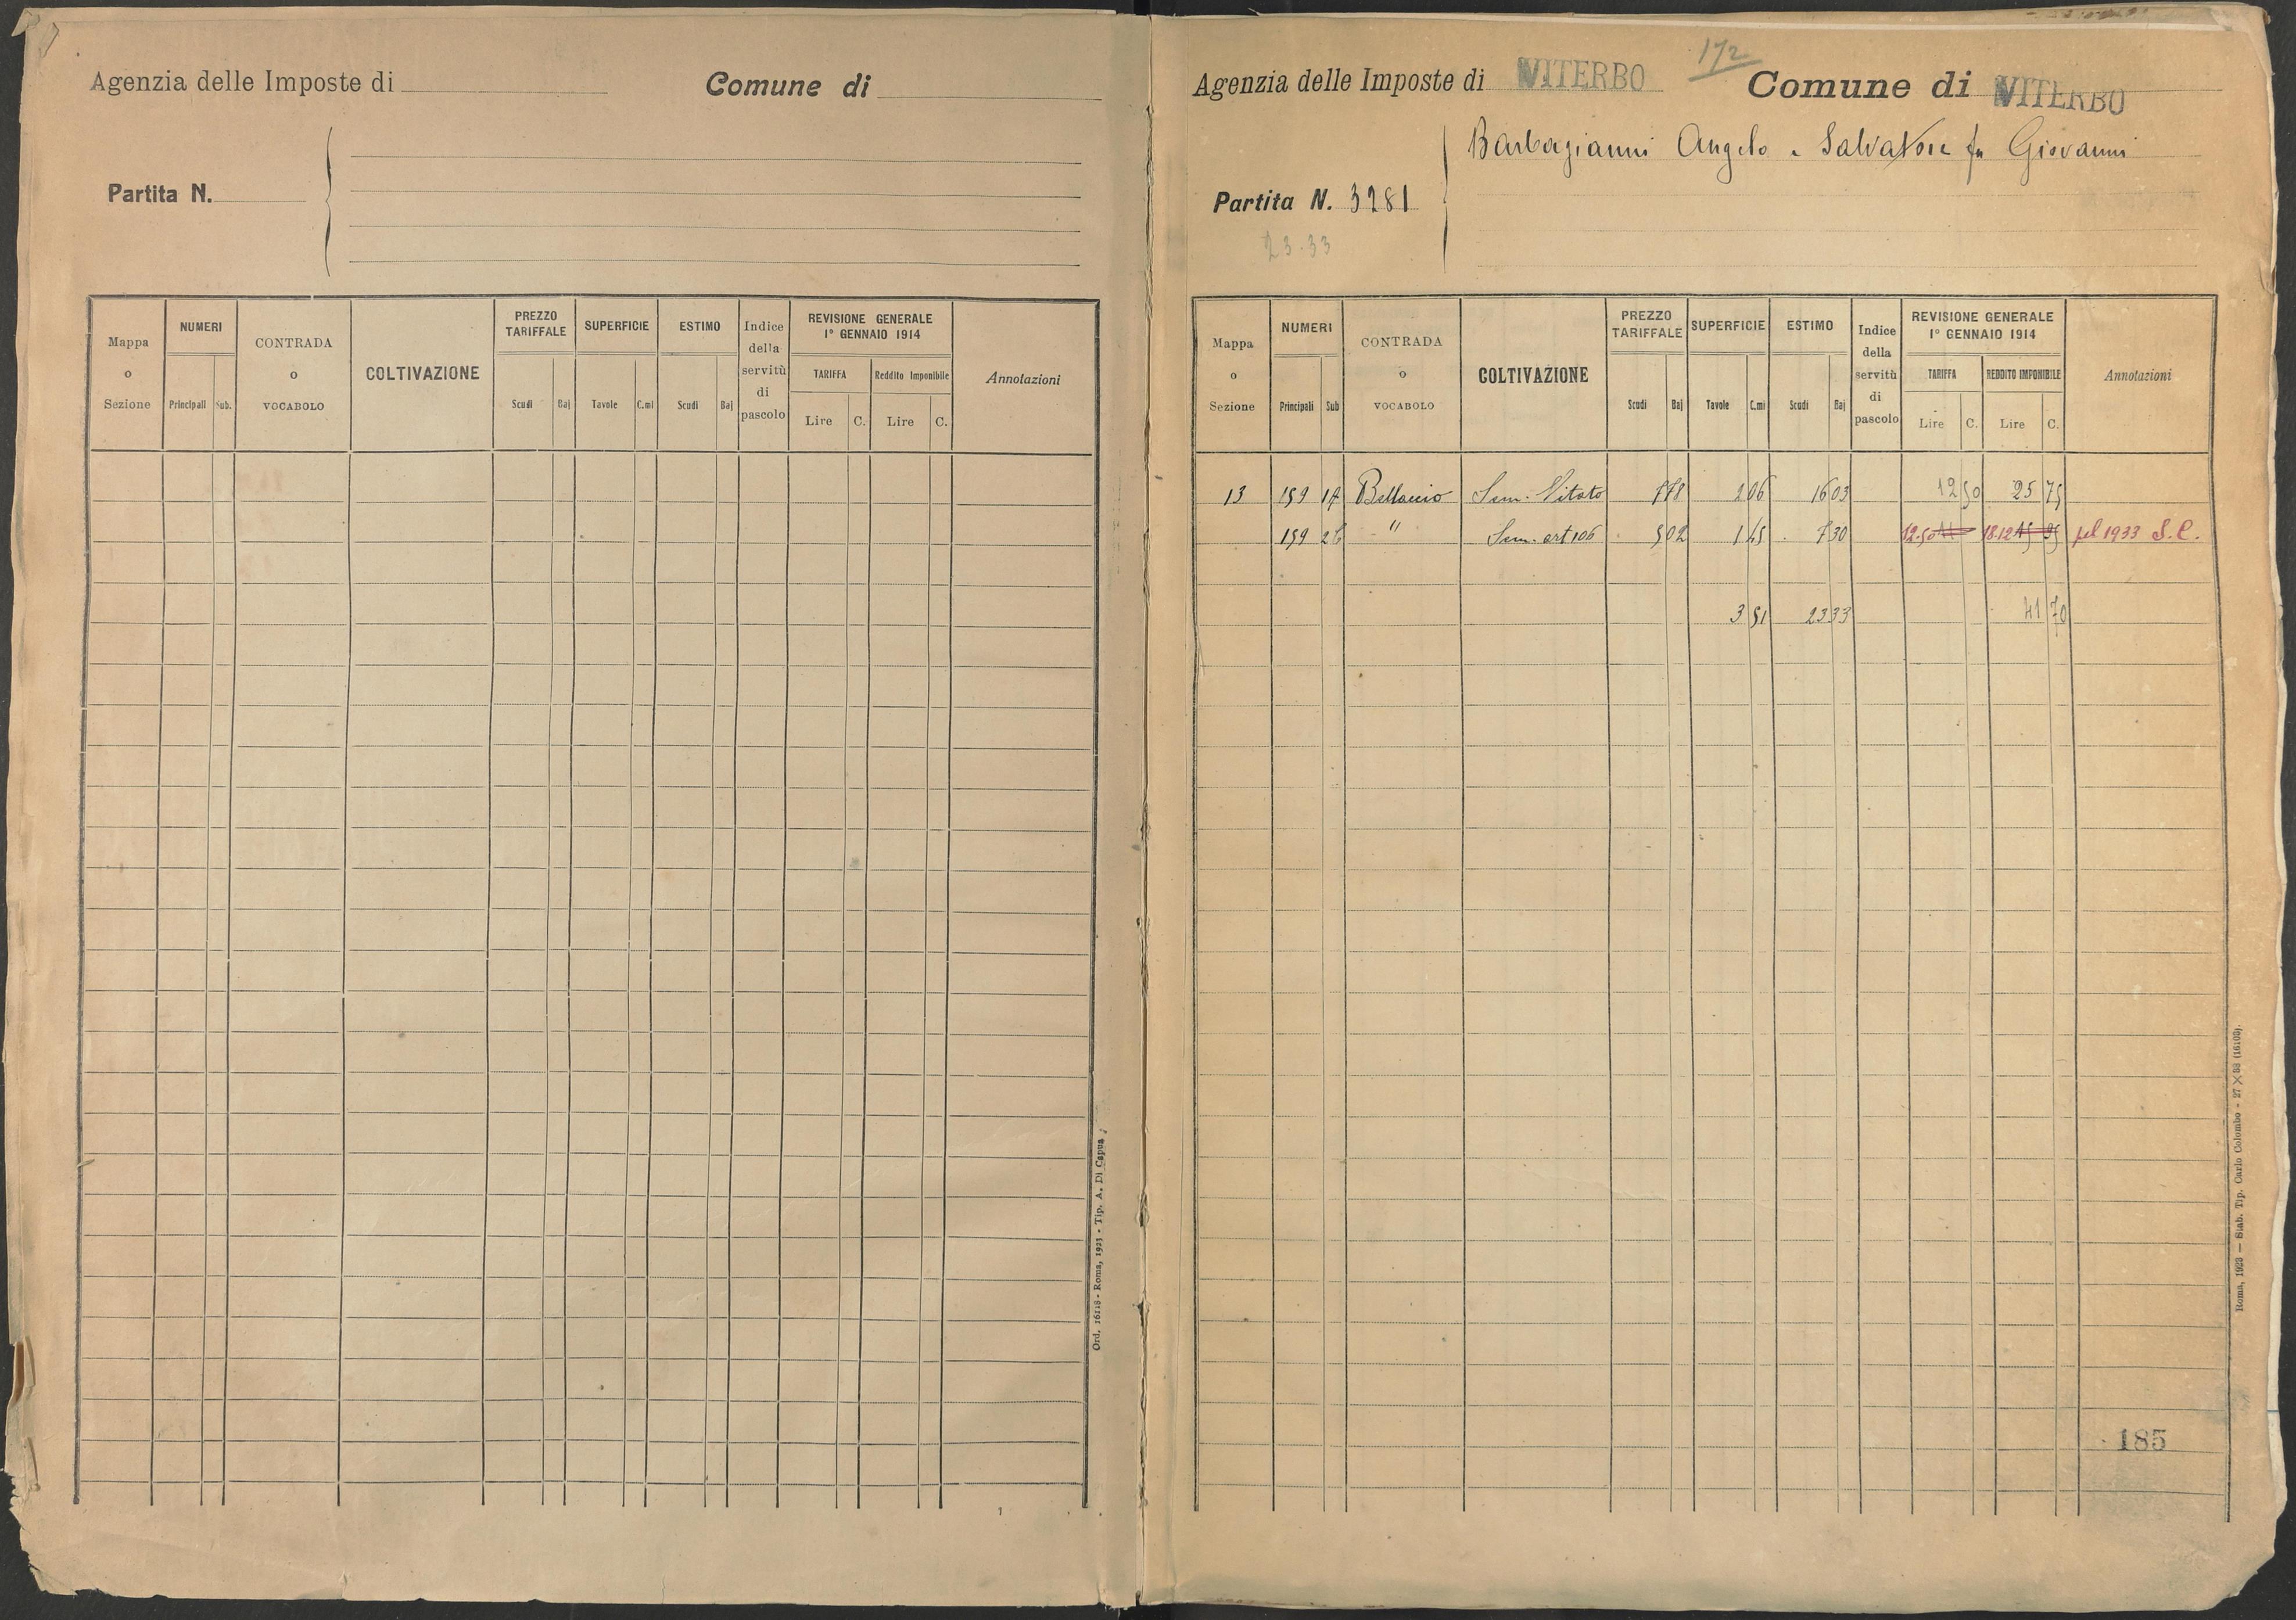 Agenzia delle Imposte di
Comune di
Partita N.
Mappa o Sezione
NUMERI
Principali
Sub.
CONTRADA o VOCABOLO
COLTIVAZIONE
PREZZO TARIFFALE
Scudi
Baj
SUPERFICIE
Tavole
C.mi
ESTIMO
Scudi
Baj
Indice della servitù di pascolo
REVISIONE GENERALE
1° GENNAIO 1914
TARIFFA
Lire
C.
Reddito Imponibile
Lire
C.
Annotazioni
Ord. 16118 - Roma, 1923 - Tip. A. Di Capua
1
172
Agenzia delle Imposte di VITERBO
Comune di VITERBO
Barbagianni Angelo e Salvatore fu Giovanni
Partita N. 3281
23.33
Mappa o Sezione
NUMERI
Principali
Sub
CONTRADA o VOCABOLO
COLTIVAZIONE
PREZZO TARIFFALE
Scudi
Baj
SUPERFICIE
Tavole
C.mi
ESTIMO
Scudi
Baj
Indice della servitù di pascolo
REVISIONE GENERALE
1° GENNAIO 1914
TARIFFA
Lire
C.
REDDITO IMPONIBILE
Lire
C.
Annotazioni
13 159 Bellaccio Sem. Vitato 7 78 2 06 16 03 12 50 25 75
159 " Sem. art 106 5 02 1 45 7 30 12.50 18.12 15 95 pel 1933 S.C.
3 51 23 33 41 70
185
Roma, 1923 — Stab. Tip. Carlo Colombo - 27 × 38 (16103).